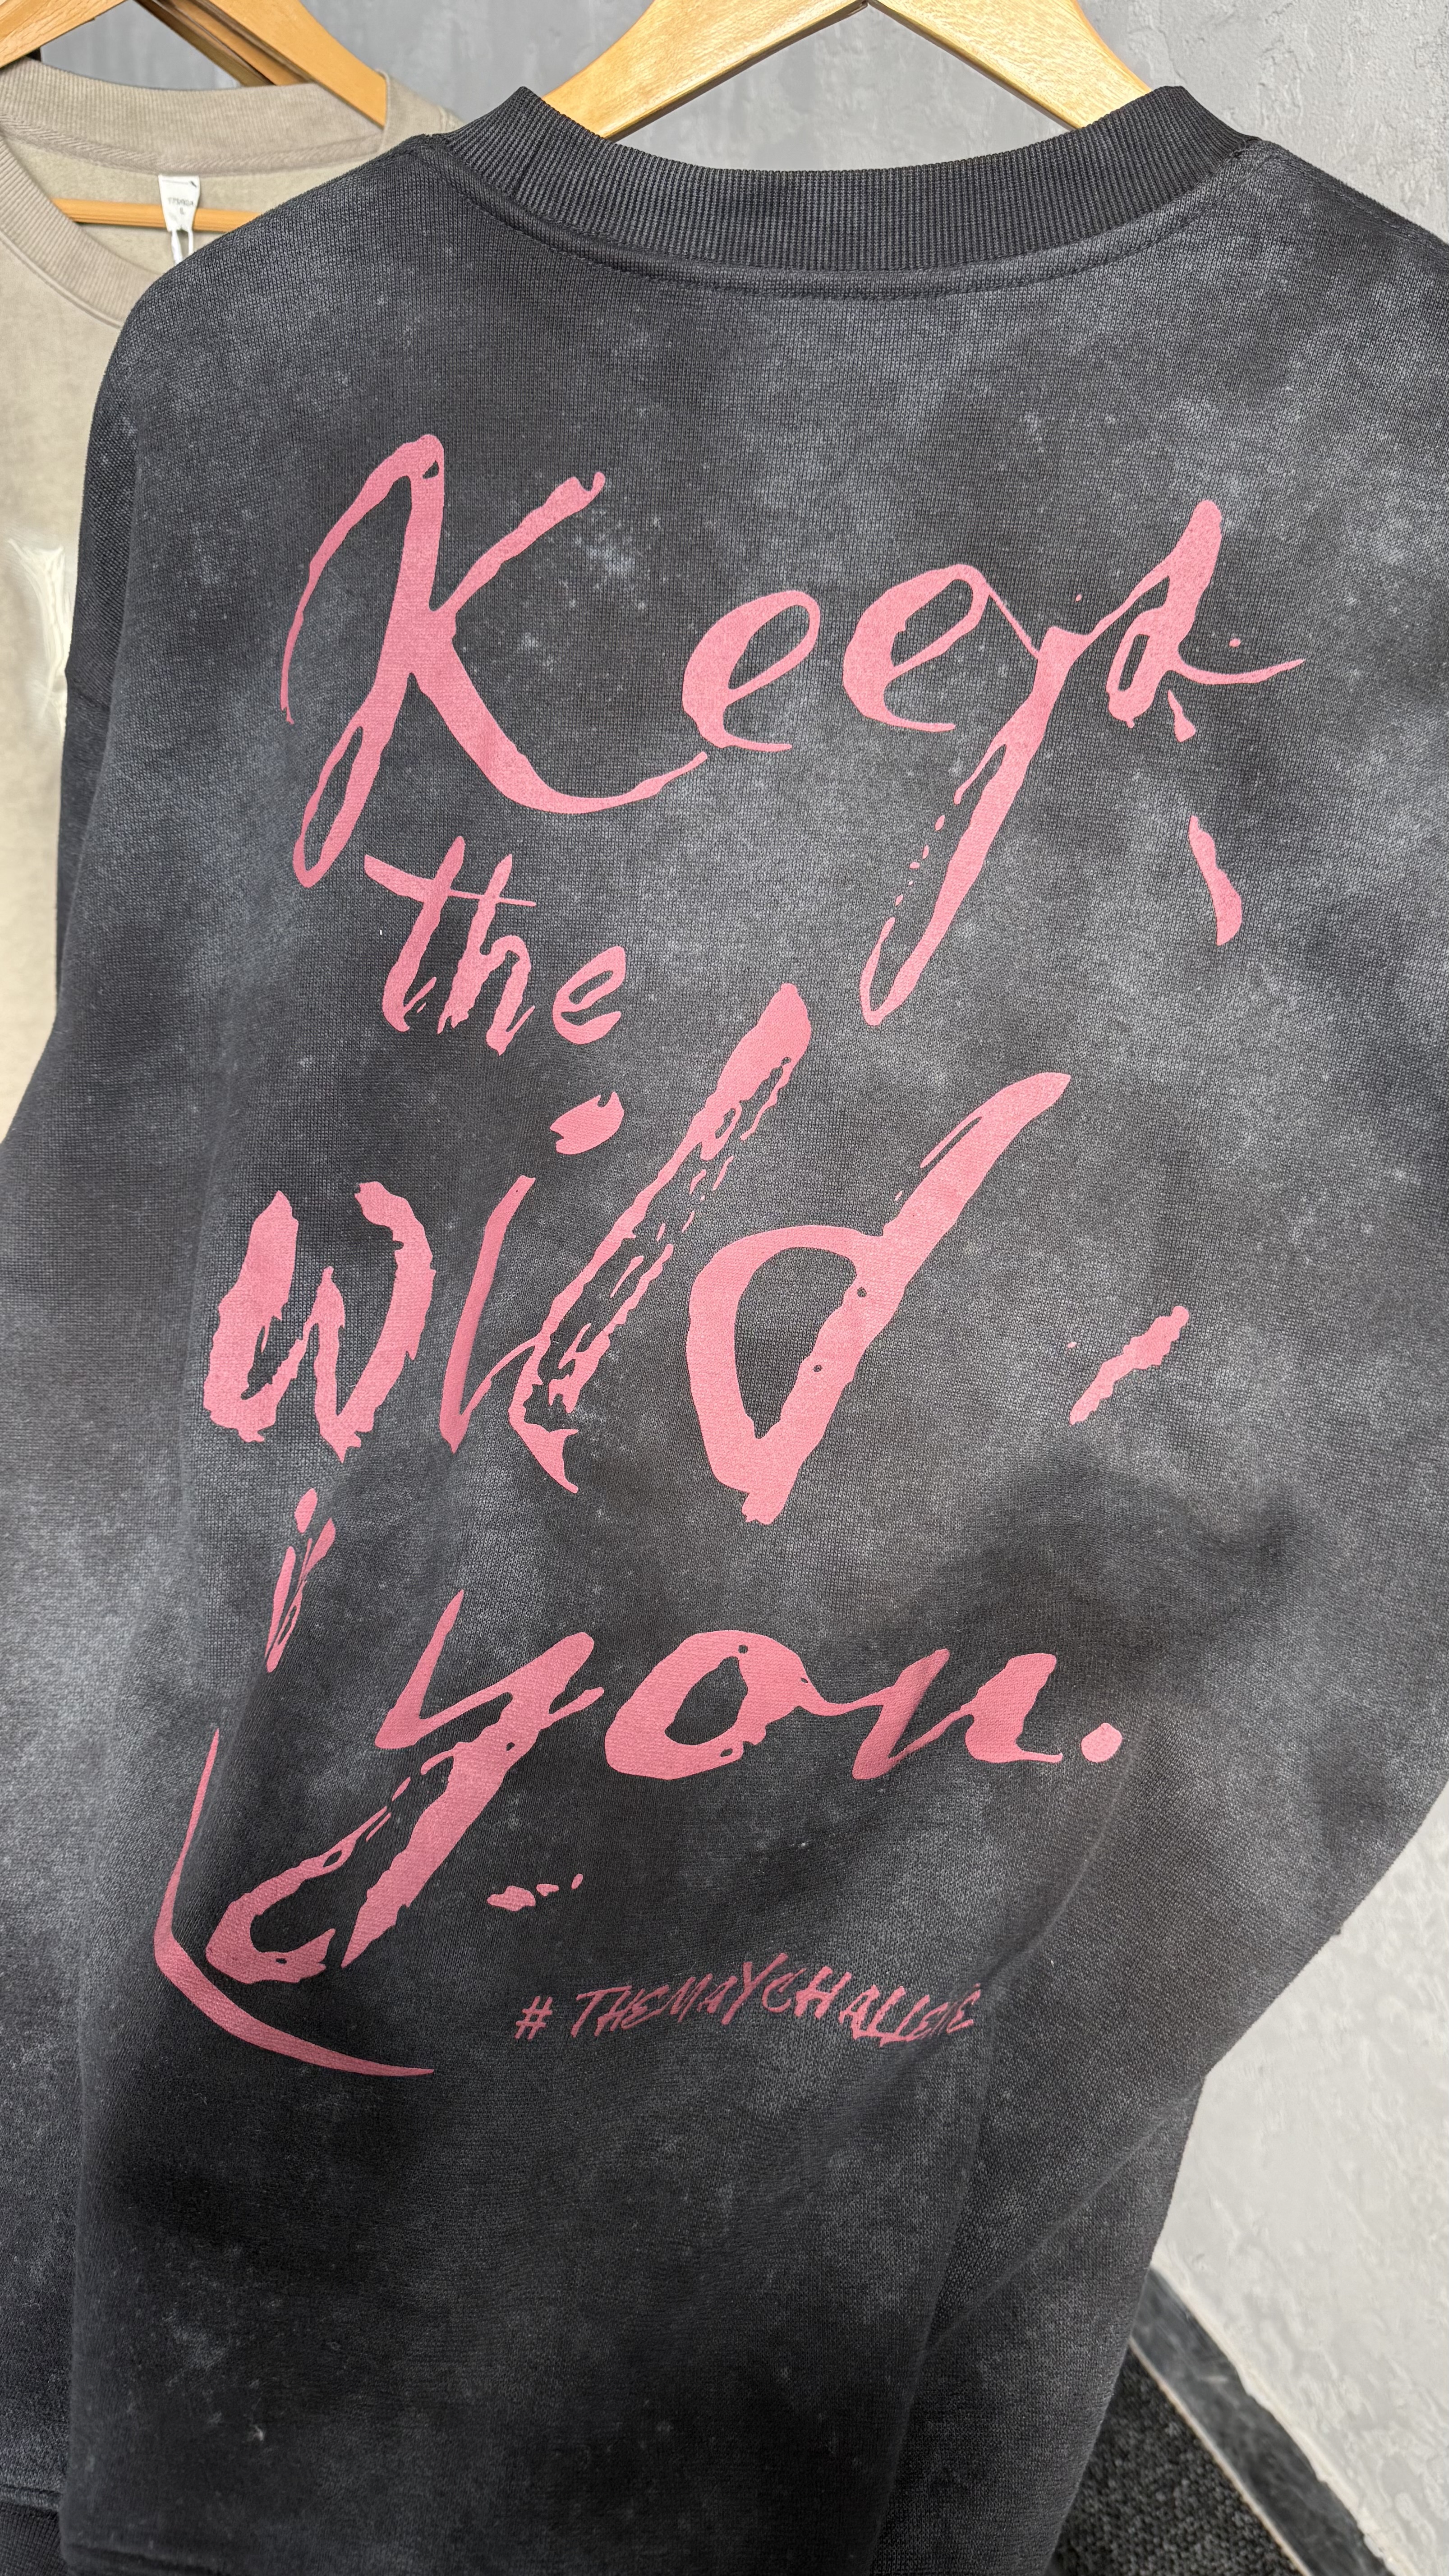 Keep
the
wild
in
you.
# THEMAYCHALLENE